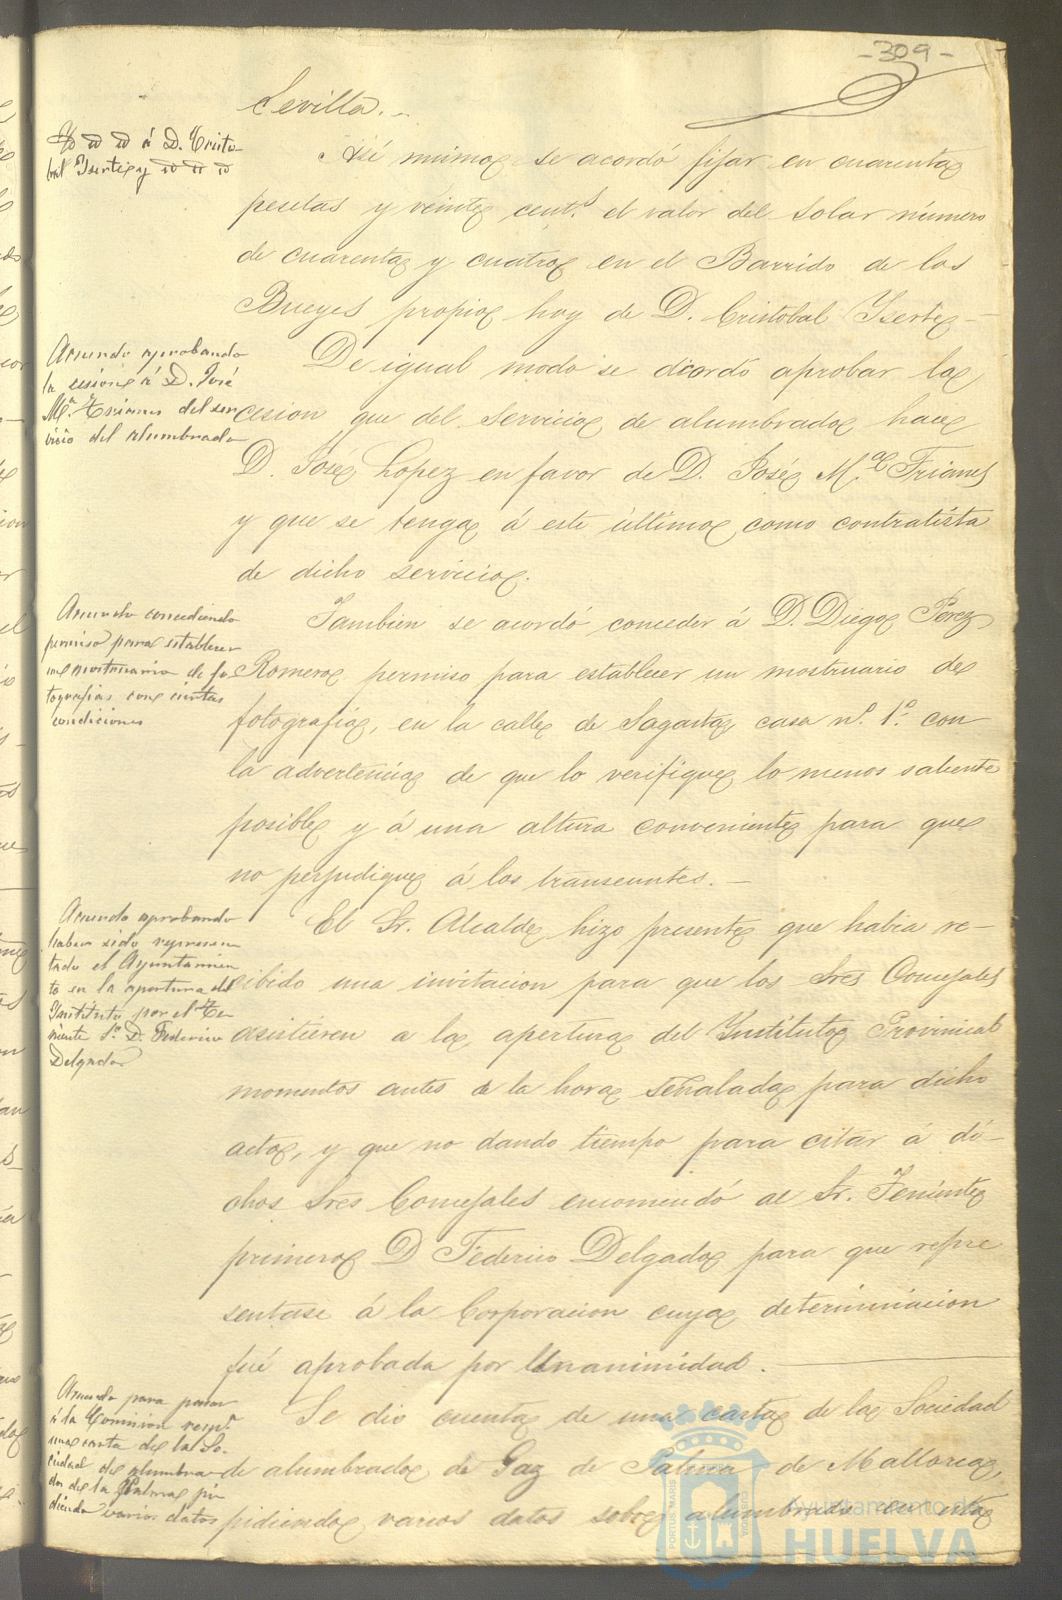 -309-
Sevilla.-
Id id id á D. Cristo-
bal Ysertey id id id
Asi mismo se acordó fijar en cuarenta
pesetas y veinte cent.s el valor del solar número
de cuarenta y cuatro en el Barrido de los
Bueyes propio hoy de D. Cristobal Yserte-
Acuerdo aprobando
la cesion á D. José
M.a Trianes del ser
vicio del alumbrado
De igual modo se acordó aprobar la
cesion que del servicio de alumbrado hace
D. José Lopez en favor de D. José M.a Trianes
y que se tenga á este último como contratista
de dicho servicio.
Acuerdo concediendo
permiso para establecer
un mostruario de fo
tografias con ciertas
condiciones
Tambien se acordó conceder á D. Diego Perez
Romero permiso para establecer un mostruario de
fotografia, en la calle de Sagasta casa n.º 1.º con
la advertencia de que lo verifique lo menos saliente
posible y á una altura conveniente para que
no perjudique á los transeuntes.-
Acuerdo aprobando
haber sido represen
tado el Ayuntamien
to en la apertura del
Instituto por el Te-
niente 1.º D. Federico
Delgado
El Sr. Alcalde hizo presente que habia re-
cibido una invitacion para que los Sres Concejales
asistieren a la apertura del Instituto Provincial
momentos antes de la hora señalada para dicho
acto, y que no dando tiempo para citar á di-
chos Sres Concejales encomendó al Sr. Teniente
primero D Federico Delgado para que repre
sentase á la Corporacion cuya determinacion
fué aprobada por Unanimidad.
Acuerdo para pasar
á la Comision resp.a
una carta de la So-
ciedad de alumbra-
do de la Palma pi
diendo varios datos
Se dio cuenta de una carta de la Sociedad
de alumbrado de Gaz de Palma de Mallorca,
pidiendo varios datos sobre alumbrado en esta
PORTUS MARIS
CUSTODIA
Ayuntamiento de
HUELVA